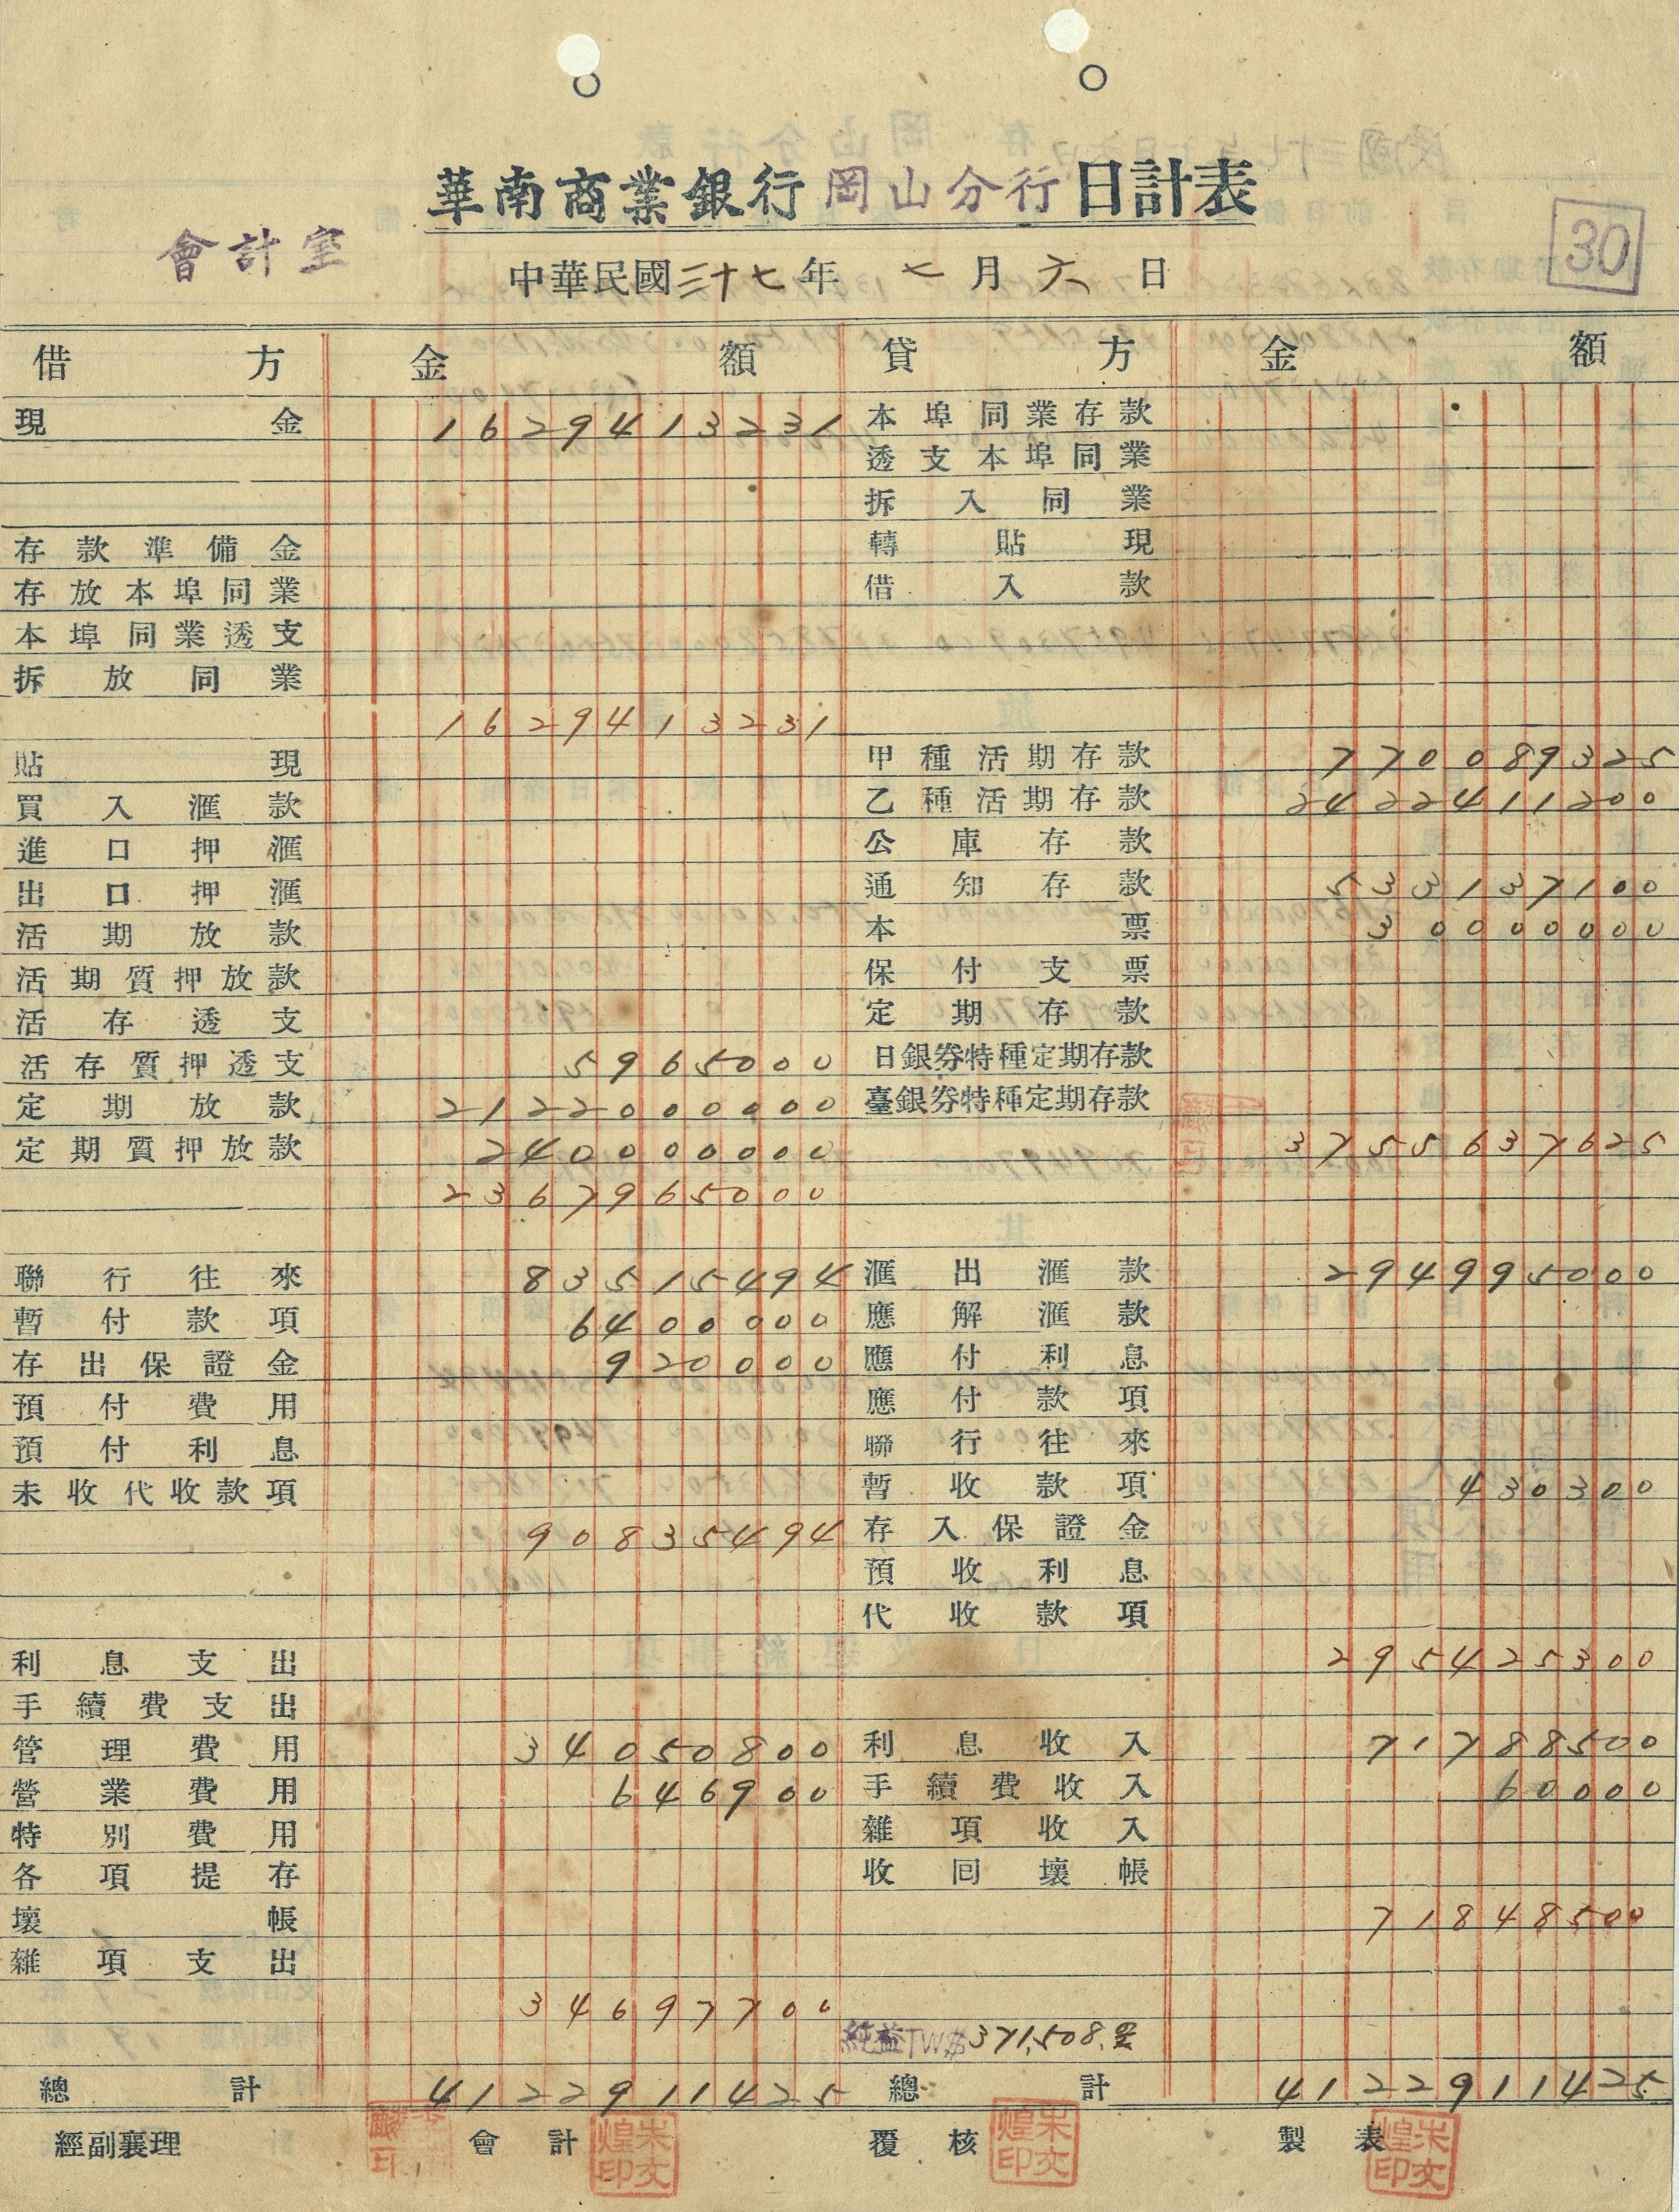 華南商業銀行岡山分行日計表
會計室
30
中華民國三十七年 七月六日
借方 金額
現金 1629413231
存款準備金
存放本埠同業
本埠同業透支
拆放同業
1629413231
貼現
買入滙款
進口押滙
出口押滙
活期放款
活期質押放款
活存透支
活存質押透支 5965000
定期放款 2122000000
定期質押放款 240000000
2367965000
聯行往來 83515494
暫付款項 6400000
存出保證金 920000
預付費用
預付利息
未收代收款項
90835494
利息支出
手續費支出
管理費用 34050800
營業費用 646900
特別費用
各項提存
壞帳
雜項支出
34697700
總計 4122911425
貸方 金額
本埠同業存款
透支本埠同業
拆入同業
轉貼現
借入款
甲種活期存款 770089325
乙種活期存款 2422411200
公庫存款
通知存款 533137100
本票 30000000
保付支票
定期存款
日銀券特種定期存款
臺銀券特種定期存款
3755637625
滙出滙款 294995000
應解滙款
應付利息
應付款項
聯行往來
暫收款項 430300
存入保證金
預收利息
代收款項
295425300
利息收入 71788500
手續費收入 60000
雜項收入
收回壞帳
71848500
純益TW$371,508.00
總計 4122911425
經副襄理 會計 朱文煌印 覆核 朱文煌印 製表 朱文煌印